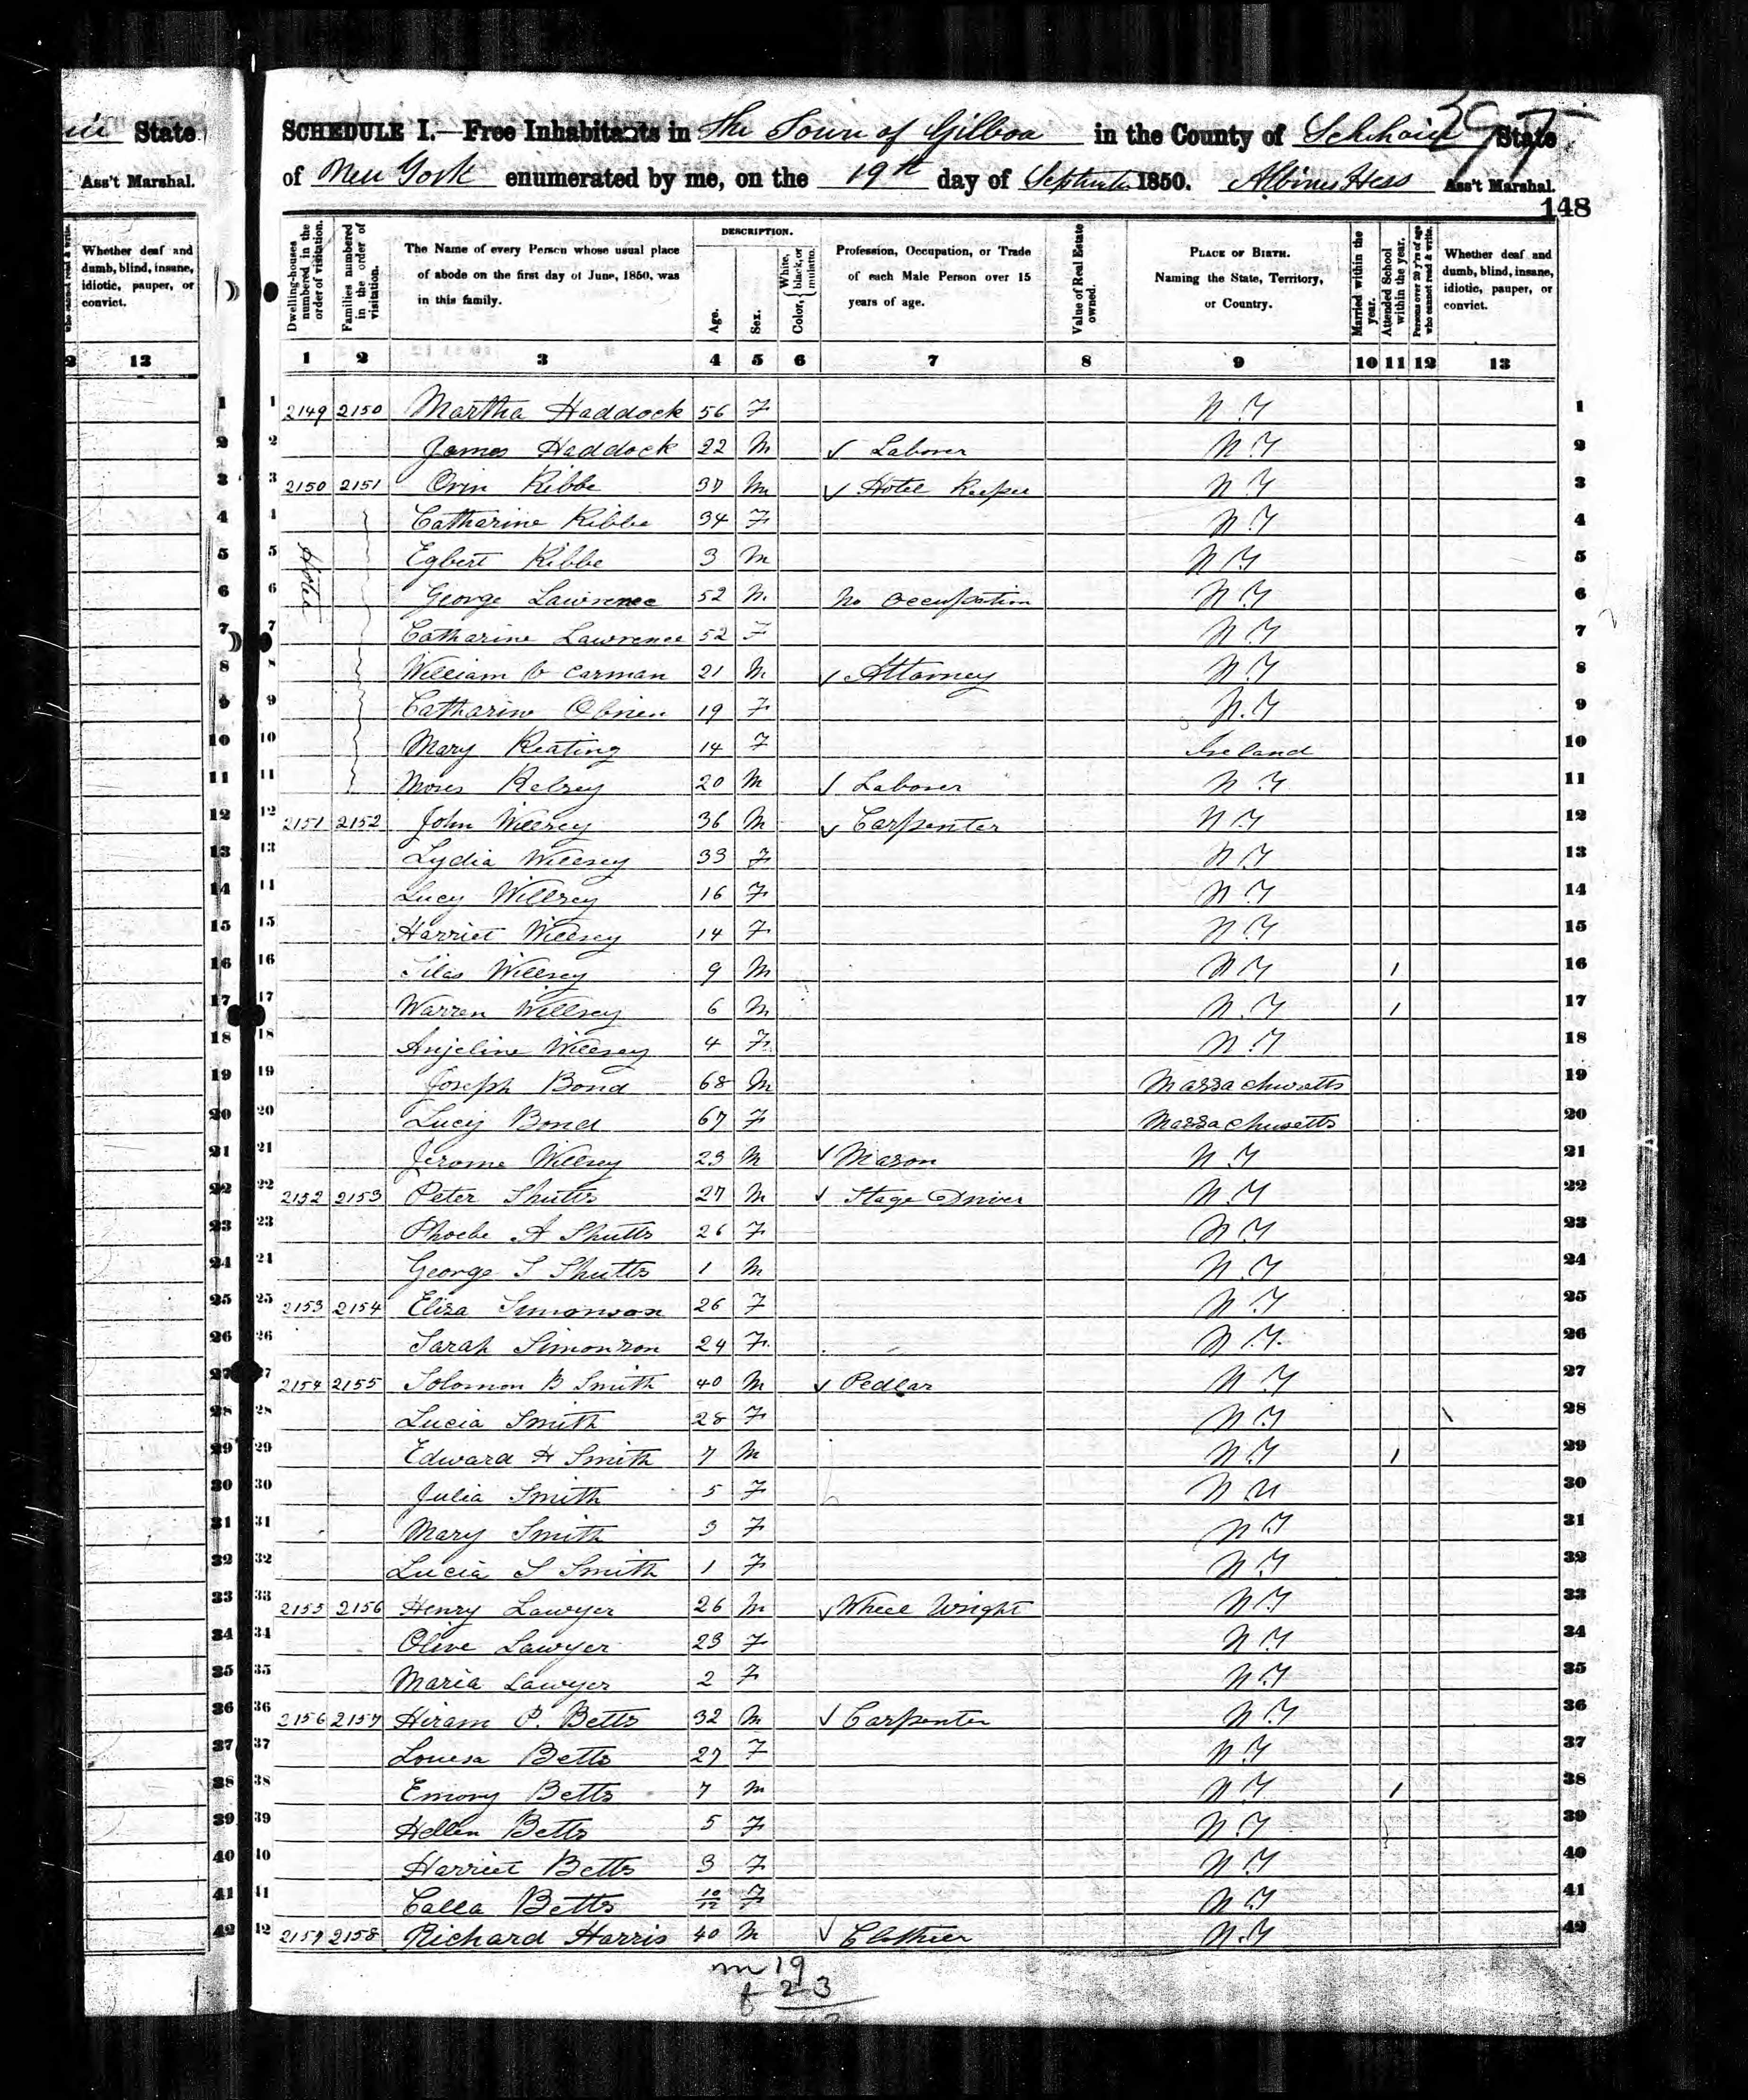 State
Ass't Marshal.
Whether deaf and
dumb, blind, insane,
idiotic, pauper, or
convict.
13
397
SCHEDULE I.—Free Inhabitants in The Town of Gilboa in the County of Schoharie State
of New York enumerated by me, on the 19th day of September 1850. Albinus Hess Ass't Marshal.
148
Dwelling-houses numbered in the order of visitation.
Families numbered in the order of visitation.
The Name of every Person whose usual place of abode on the first day of June, 1850, was in this family.
DESCRIPTION.
Age.
Sex.
Color, { White, black, or mulatto.
Profession, Occupation, or Trade of each Male Person over 15 years of age.
Value of Real Estate owned.
PLACE OF BIRTH. Naming the State, Territory, or Country.
Married within the year.
Attended School within the year.
Persons over 20 y'rs of age who cannot read & write.
Whether deaf and dumb, blind, insane, idiotic, pauper, or convict.
1 2 3 4 5 6 7 8 9 10 11 12 13
1 2149 2150 Martha Haddock 56 F N.Y 1
2 James Haddock 22 M ✓ Laborer N.Y 2
3 2150 2151 Orin Kibbe 37 M ✓ Hotel Keeper N.Y 3
4 Catharine Kibbe 34 F N.Y 4
Hotel
5 Egbert Kibbe 3 M N.Y 5
6 George Lawrence 52 M No Occupation N.Y 6
7 Catharine Lawrence 52 F N.Y 7
8 William C Carman 21 M ✓ Attorney N.Y 8
9 Catharine Obrien 19 F N.Y 9
10 Mary Keating 14 F Ireland 10
11 Moses Kelsey 20 M ✓ Laborer N.Y 11
12 2151 2152 John Willsey 36 M ✓ Carpenter N.Y 12
13 Lydia Willsey 33 F N.Y 13
14 Lucy Willsey 16 F N.Y 14
15 Harriet Willsey 14 F N.Y 15
16 Silas Willsey 9 M N.Y 1 16
17 Warren Willsey 6 M N.Y 1 17
18 Anjeline Willsey 4 F N.Y 18
19 Joseph Bond 68 M Massachusetts 19
20 Lucy Bond 67 F Massachusetts 20
21 Jerome Willsey 23 M ✓ Mason N.Y 21
22 2152 2153 Peter Shutts 27 M ✓ Stage Driver N.Y 22
23 Phoebe A Shutts 26 F N.Y 23
24 George S Shutts 1 M N.Y 24
25 2153 2154 Eliza Simonson 26 F N.Y 25
26 Sarah Simonson 24 F N.Y. 26
27 2154 2155 Solomon B Smith 40 M ✓ Pedlar N.Y 27
28 Lucia Smith 28 F N.Y 28
29 Edward H Smith 7 M N.Y 1 29
30 Julia Smith 5 F N.Y 30
31 Mary Smith 3 F N.Y 31
32 Lucia S Smith 1 F N.Y 32
33 2155 2156 Henry Lawyer 26 M ✓ Wheel Wright N.Y 33
34 Olive Lawyer 23 F N.Y 34
35 Maria Lawyer 2 F N.Y 35
36 2156 2157 Hiram P. Betts 32 M ✓ Carpenter N.Y 36
37 Louisa Betts 27 F N.Y 37
38 Emory Betts 7 M N.Y 1 38
39 Hellen Betts 5 F N.Y 39
40 Harriet Betts 3 F N.Y 40
41 Calla Betts 10/12 F N.Y 41
42 2157 2158 Richard Harris 40 M ✓ Clothier N.Y 42
m 19
f 23